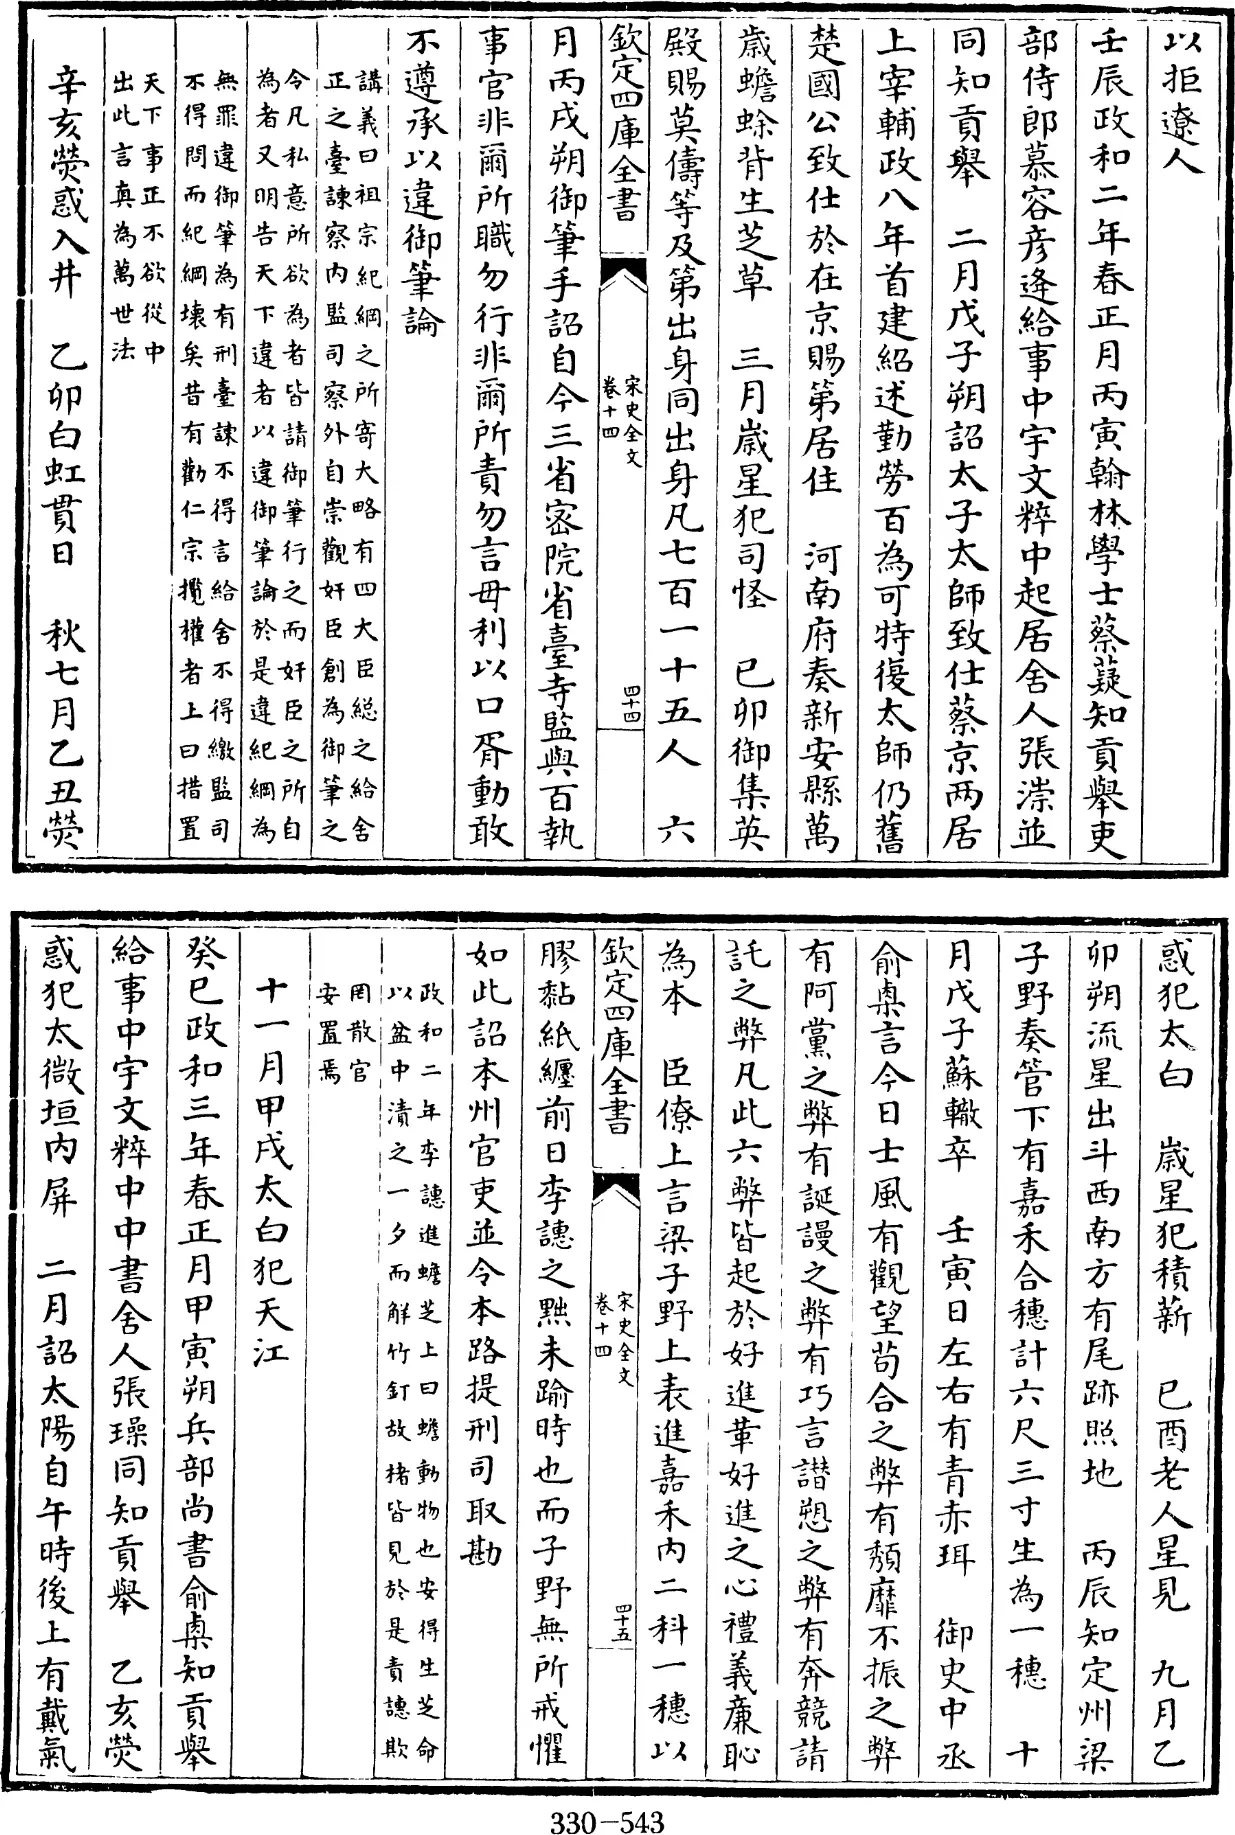 以拒遼人
壬辰政和二年春正月丙寅翰林學士蔡薿知貢舉吏
部侍郎慕容彦逢給事中宇文粹中起居舍人張漴並
同知貢舉　二月戊子朔詔太子太師致仕蔡京兩居
上宰輔政八年首建紹述勤勞百為可特復太師仍舊
楚國公致仕於在京賜第居住　河南府奏新安縣萬
歲蟾蜍背生芝草　三月歲星犯司怪　己卯御集英
殿賜莫儔等及第出身同出身凡七百一十五人　六
欽定四庫全書
宋史全文
卷十四
四十四
月丙戌朔御筆手詔自今三省宻院省臺寺監與百執
事官非爾所職勿行非爾所責勿言毋利以口胥動敢
不遵承以違御筆論
講義曰祖宗紀綱之所寄大略有四大臣総之給舍
正之臺諫察内監司察外自崇觀奸臣創為御筆之
令凡私意所欲為者皆請御筆行之而奸臣之所自
為者又明告天下違者以違御筆論於是違紀綱為
無罪違御筆為有刑臺諫不得言給舍不得繳監司
不得問而紀綱壊矣昔有勸仁宗攬權者上曰措置
天下事正不欲從中
出此言真為萬世法
辛亥熒惑入井　乙卯白虹貫日　秋七月乙丑熒
惑犯太白　歲星犯積薪　己酉老人星見　九月乙
卯朔流星出斗西南方有尾跡照地　丙辰知定州梁
子野奏管下有嘉禾合穗計六尺三寸生為一穗　十
月戊子蘇轍卒　壬寅日左右有青赤珥　御史中丞
俞㮚言今日士風有觀望苟合之弊有頽靡不振之弊
有阿黨之弊有誕謾之弊有巧言譖愬之弊有奔競請
託之弊凡此六弊皆起於好進革好進之心禮義亷恥
為本　臣僚上言梁子野上表進嘉禾内二科一穗以
欽定四庫全書
宋史全文
卷十四
四十五
膠黏紙纒前日李譓之黜未踰時也而子野無所戒懼
如此詔本州官吏並令本路提刑司取勘
政和二年李譓進蟾芝上曰蟾動物也安得生芝命
以盆中漬之一夕而解竹釘故楮皆見於是責譓欺
罔散官
安置焉
十一月甲戌太白犯天江
癸巳政和三年春正月甲寅朔兵部尚書俞㮚知貢舉
給事中宇文粹中中書舍人張璪同知貢舉　乙亥熒
惑犯太微垣内屏　二月詔太陽自午時後上有戴氣
330-543